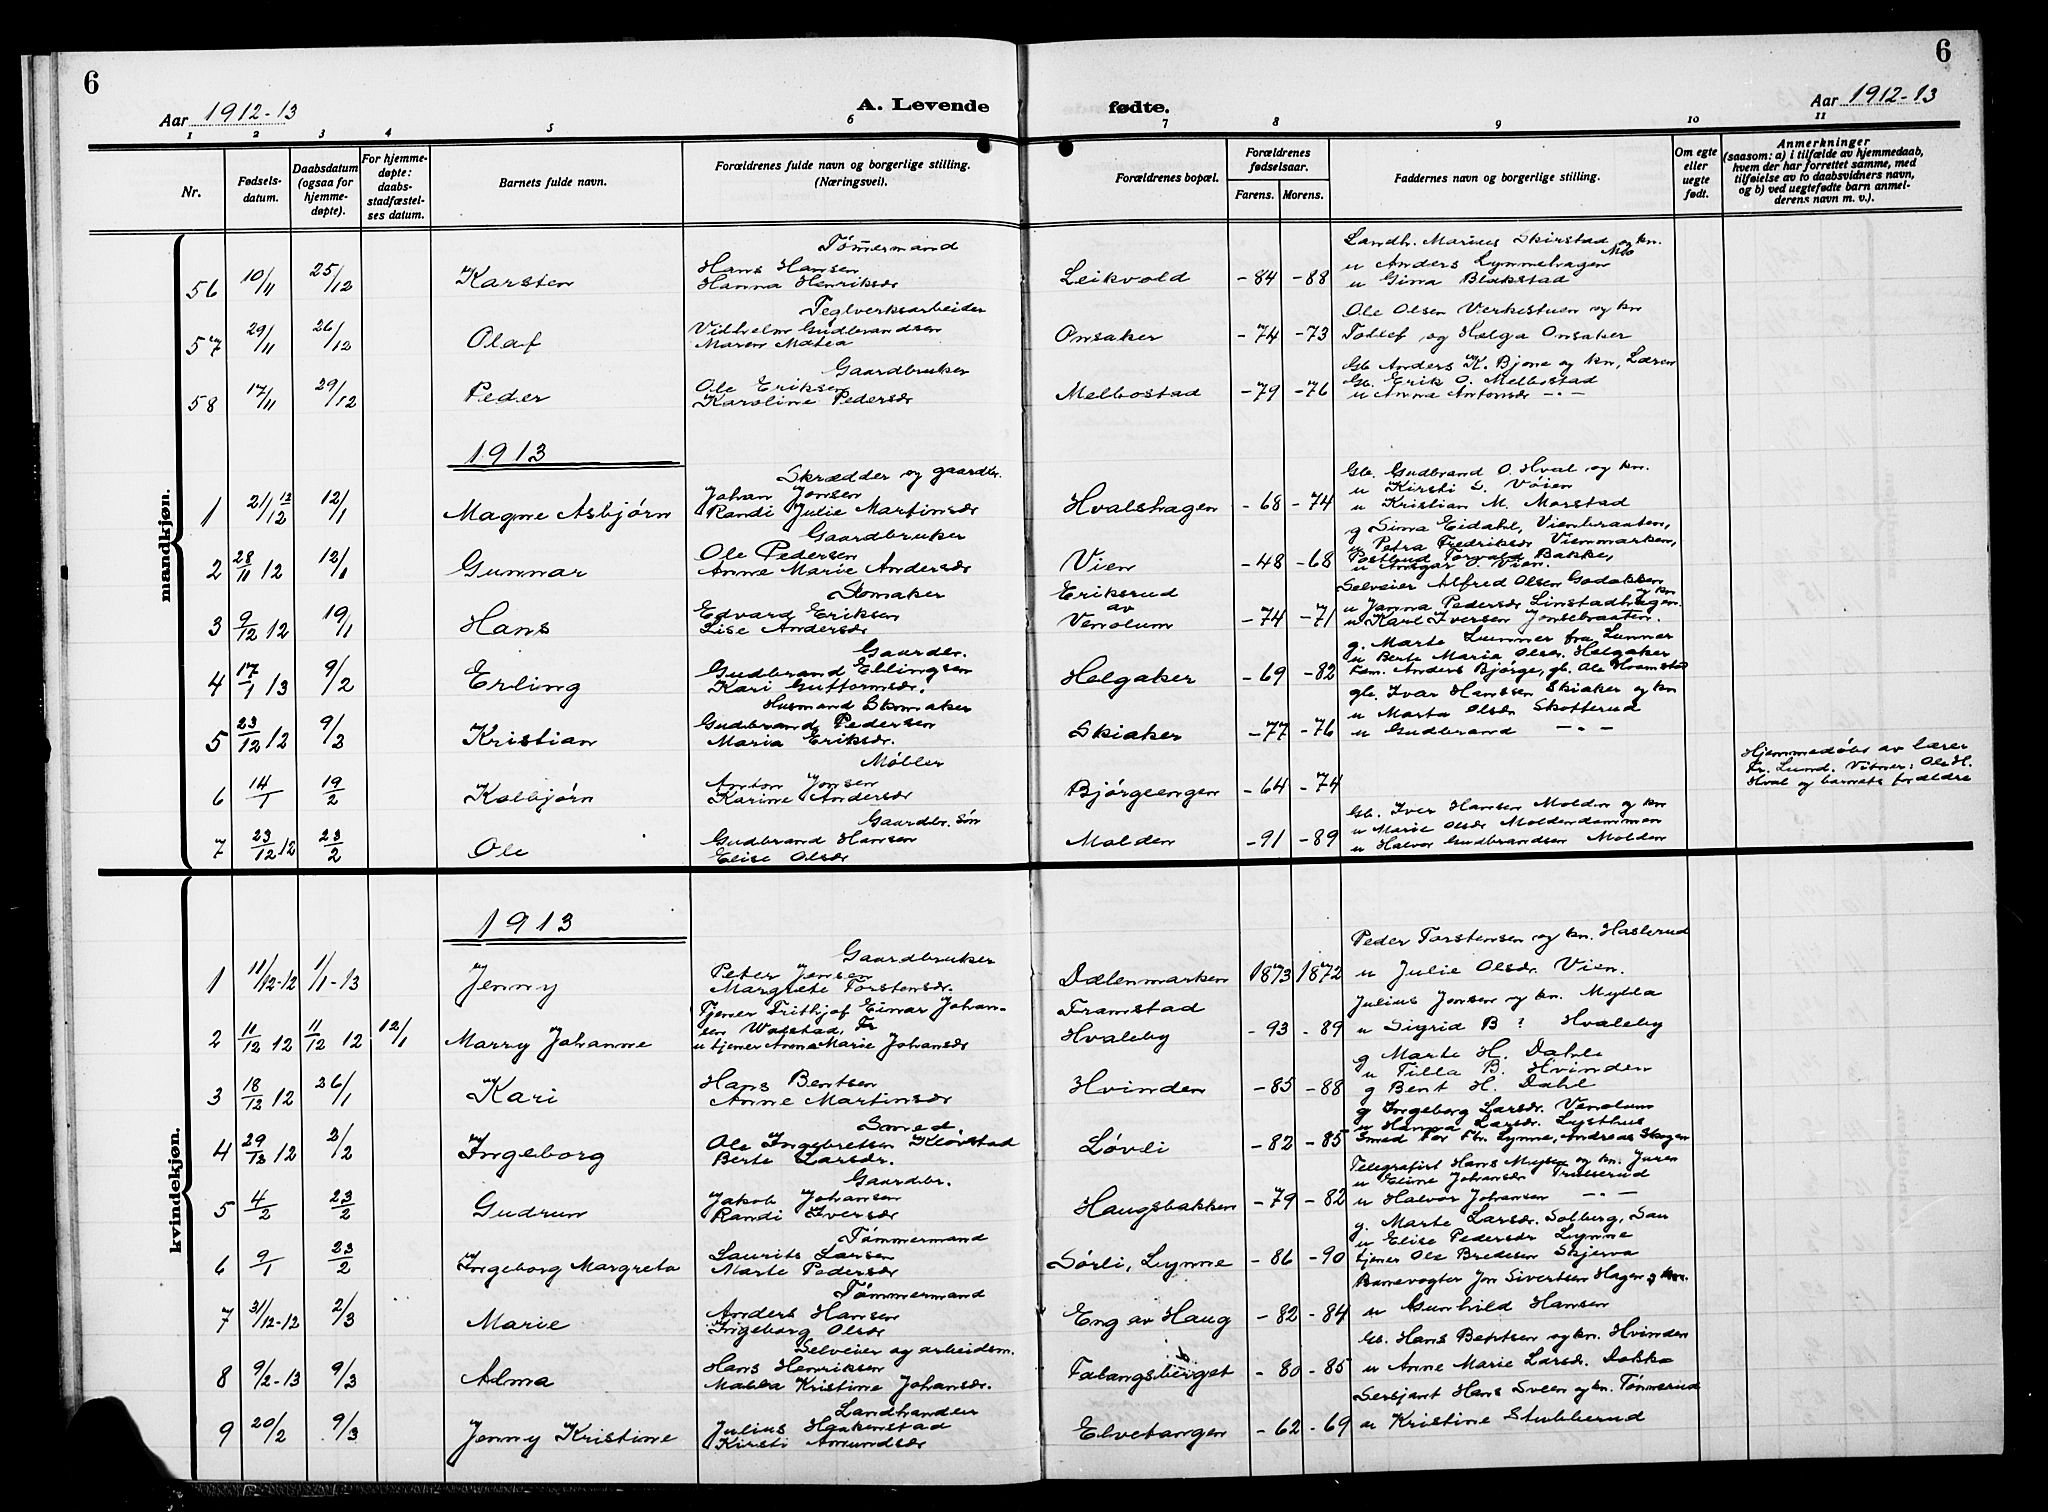 6
6
Aar 1912-13
A. Levende
fødte.
Aar 1912-13
1 2 3 4 5 6 7 8 9 10 11
Nr.
Fødsels-
datum.
Daabsdatum
(ogsaa for
hjemme-
døpte).
For hjemme-
døpte:
daabs-
stadfæstel-
ses datum.
Barnets fulde navn.
Forældrenes fulde navn og borgerlige stilling.
(Næringsvei).
Forældrenes bopæl.
Forældrenes
fødselsaar.
Farens. Morens.
Faddernes navn og borgerlige stilling.
Om egte
eller
uegte
født.
Anmerkninger
(saasom: a) i tilfælde av hjemmedaab,
hvem der har forrettet samme, med
tilføielse av to daabsvidners navn,
og b) ved uegtefødte barn anmel-
derens navn m. v.).
mandkjøn.
Tømmermand
56 10/11 25/12 Karsten
Hans Hansen
Hanna Henriksdr
Leikvold -84 -88
Landh. Marius Skirstad og kn.
u Anders Lynnehagen
u Gina Blakstad
Teglverksarbeider
57 29/11 26/12 Olaf
Vilhelm Gudbrandsen
Maren Matea
Onsaker -74 -73
Ole Olsen Verkestuen og kn
Tollef og Helga Onsaker
Gaardbruker
58 17/11 29/12 Peder
Ole Eriksen
Karoline Pedersdr
Melbostad -79 -76
Gb Anders K. Bjone og kn, Løren
Gb. Erik O. Melbostad
u Anna Antonsdr -"-
1913
Skrædder og gaardbr.
1 21/12 12 12/1 Magne Asbjørn
Johan Jonsen
Randi Julie Martinsdr
Hvalshagen -68 -74
Gb. Gudbrand O. Hval og kn.
u Kirsti S. Vøien
u Kristian M. Morstad
Gaardbruker
2 28/11 12 12/1 Gunnar
Ole Pedersen
Anne Marie Andersdr
Vien -48 -68
g Sina Eidahl, Vienbraaten,
u Petra Fredriksdr Vienmarken,
Postbud Torvald Bakke,
u Ansgar O. Vien.
Skomaker
3 9/12 12 19/1 Hans
Edvard Eriksen
Lise Andersdr
Eriksrud
av
Venolum -74 -71
Selveier Alfred Olsen Godakken og kn
u Janna Pedersdr Linstadhagen
u Karl Iversen Jonsebraaten.
Gaardbr.
4 17/1 13 9/2 Erling
Gudbrand Ellingsen
Kari Guttormsdr.
Helgaker -69 -82
g. Marte Lunner fra Lunner
u Berte Maria Olsdr. Helgaker
Fan. Anders Bjørge, gb. Ole Hvamstad
Husmand Skomaker
5 23/12 12 9/2 Kristian
Gudbrand Pedersen
Maria Eriksdr.
Skiaker -77 -76
gb. Ivar Hanssen Skiaker og kn
u Marta Olsdr Skotterud
u Gudbrand -"-
Møller
6 14/1 19/2 Kolbjørn
Anton Jonsen
Karine Andersdr
Bjørgeengen -64 -74
Hjemmedøbt av lærer
Fr. Lund. Vitner: Ole H.
Hval og barnets forældre
Gaardbr. søn
7 23/12 12 23/2 Ole
Gudbrand Hansen
Elise Olsdr
Molden -91 -89
Gb. Iver Hansen Molden og kn
u Marie Olsdr Moldendammen
u Halvor Gudbrandsen Molden
kvindekjøn.
1913
Gaardbruker
1 11/12-12 1/1-13 Jenny
Peter Jensen
Margrete Torstensdr.
Dælenmarken 1873 1872
Peder Torstensen og kn. Haslerud
u Julie Olsdr. Vien.
2 11/12 12 11/12 12 12/1 Marry Johanne
Tjener Frithjof Einar Johan-
sen Wolstad, Fr
u tjener Anna Marie Johansdr
Framstad
Hvaleby -93 -89
Julius Jonsen og kn. Mylla
u Sigrid B ? Hvaleby
3 18/12 12 26/1 Kari
Hans Bentsen
Anne Martinsdr
Hvinden -85 -88
g Marte H. Dahl
u Tilla B. Hvinden
g Bent H. Dahl
Smed.
4 29/12 12 2/2 Ingeborg
Ole Ingebretsen Kløvstad
Berte Larsdr.
Løvli -82 -85
g Ingeborg Larsdr. Venolum
u Hanna Larsdr. Lysthus
Smed Tor Chr. Lynne, Andreas Hagen
Gaardbr.
5 4/2 23/2 Gudrun
Jakob Johansen
Randi Iversdr
Haugsbakken -79 -82
Telegrafist Hans Mejse og kn. Juren
u Eline Johansdr Trulserud
u Halvor Johansen -"-
Tømmermand
6 9/1 23/2 Ingeborg Margreta
Laurits Larsen
Marte Pedersdr
Sørli, Lynne -86 -90
g. Marte Larsdr. Solberg, Gran
u Elise Pedersdr Lynne
tjener Ole Bredesen Skjerva
Tømmermand
7 31/12-12 2/3 Marie
Anders Hansen
Ingeborg Olsdr
Eng av Haug -82 -84
Banevogter Jon Sivertsen Hagen og kn.
u Gunhild Hansen
Selveier og arbeidsm.
8 9/2-13 9/3 Alma
Hans Henriksen
Malla Kristine Johansdr.
Falangsberget -80 -85
Gb. Hans Bentsen og kn. Hvinden
u Anne Marie Larsdr. Dokka
Landhandler
9 20/2 9/3 Jenny Kristine
Julius Haakenstad
Kirsti Amundsdr
Elvetangen -62 -69
Sersjant Hans Sveen og kn. Tømmerud
u Kristine Stubberud